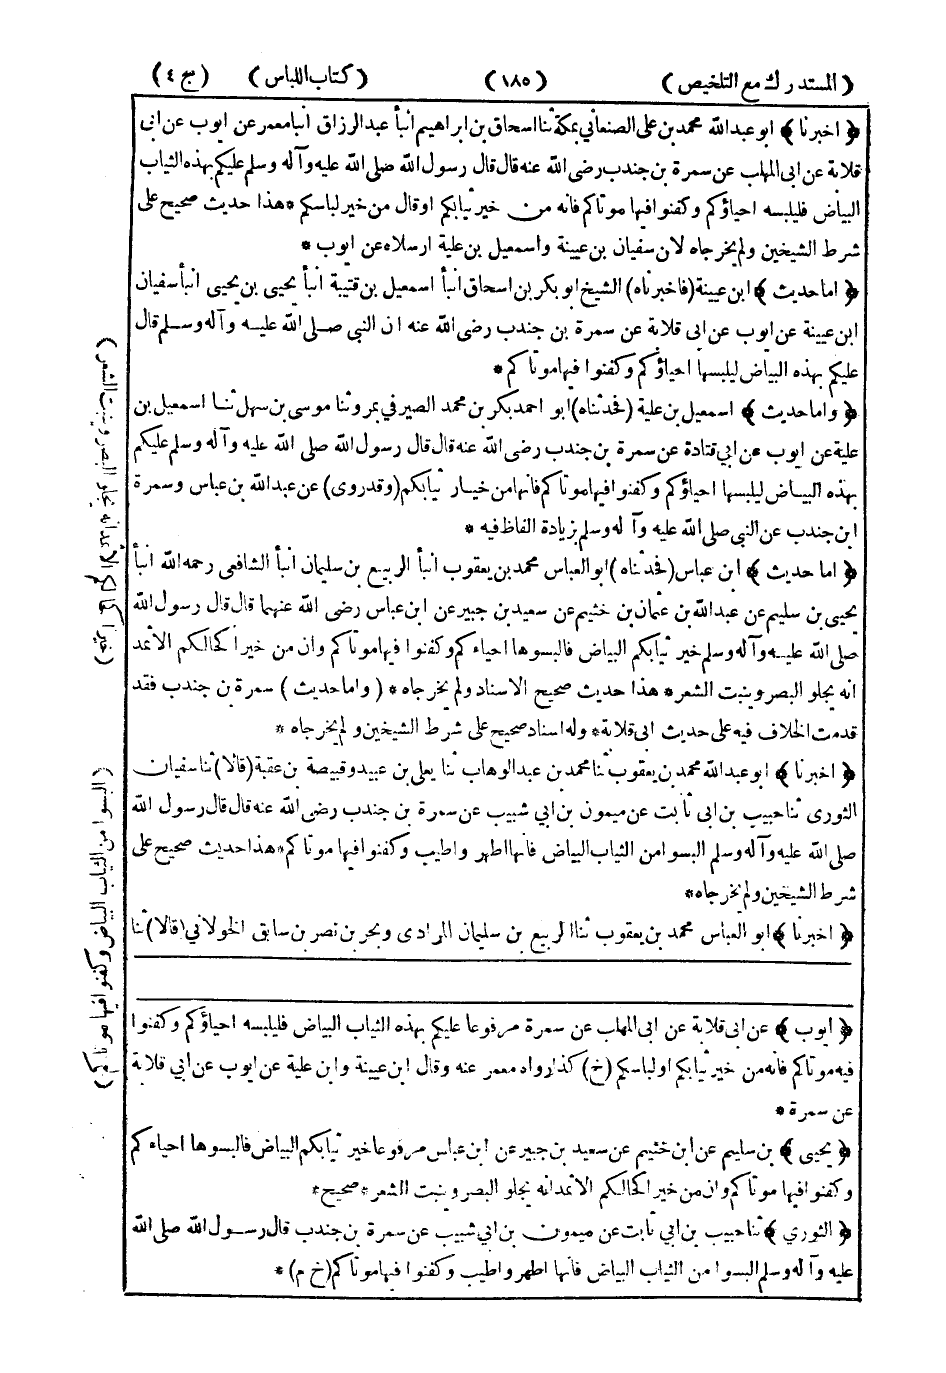 (المستدرك مع التلخيص) (١٨٥) (كتاب اللباس) (ج ٤)
﴿ اخبرنا ﴾ ابو عبد الله محمد بن على الصنعاني بمكة ثنا اسحاق بن ابراهيم انبأ عبد الرزاق انبا معمر عن ايوب عن ابى
قلابة عن ابى المهلب عن سمرة بن جندب رضى الله عنه قال قال رسول الله صلى الله عليه وآله وسلم عليكم بهذه الثياب
البياض فليلبسه احياؤكم وكفنوا فيها موتاكم فانه من خير ثيابكم او قال من خير لباسكم * هذا حديث صحيح على
شرط الشيخين ولم يخرجاه لان سفيان بن عيينة واسمعيل بن علية ارسلاه عن ايوب *
﴿ اما حديث ﴾ ابن عيينة (فاخبرناه) الشيخ ابو بكر بن اسحاق انبأ اسمعيل بن قتيبة انبأ يحيى بن يحيى انبأ سفيان
ابن عيينة عن ايوب عن ابى قلابة عن سمرة بن جندب رضى الله عنه ان النبي صلى الله عليه وآله وسلم قال
عليكم بهذه البياض ليلبسها احياؤكم وكفنوا فيها موتاكم *
﴿ واما حديث ﴾ اسمعيل بن علية (فحدثناه) ابو احمد بكر بن محمد الصيرفي بمرو ثنا موسى بن سهل ثنا اسمعيل بن
علية عن ايوب عن ابي قتادة عن سمرة بن جندب رضى الله عنه قال قال رسول الله صلى الله عليه وآله وسلم عليكم
بهذه البياض ليلبسها احياؤكم وكفنوا فيها موتاكم فانها من خيار ثيابكم (وقد روى) عن عبد الله بن عباس وسمرة
ابن جندب عن النبي صلى الله عليه وآله وسلم بزيادة الفاظ فيه *
﴿ اما حديث ﴾ ابن عباس (فحدثناه) ابو العباس محمد بن يعقوب انبأ الربيع بن سليمان انبأ الشافعى رحمه الله انبأ
يحيى بن سليم عن عبد الله بن عثمان بن خثيم عن سعيد بن جبير عن ابن عباس رضى الله عنهما قال قال رسول الله
صلى الله عليه وآله وسلم خير ثيابكم البياض فالبسوها احياءكم وكفنوا فيها موتاكم وان من خير اكحالكم الاثمد
انه يجلو البصر وينبت الشعر * هذا حديث صحيح الاسناد ولم يخرجاه * (واما حديث) سمرة بن جندب فقد
قدمت الخلاف فيه على حديث ابى قلابة * وله اسناد صحيح على شرط الشيخين ولم يخرجاه *
﴿ اخبرنا ﴾ ابو عبد الله محمد بن يعقوب ثنا محمد بن عبد الوهاب ثنا يعلى بن عبيد وقبيصة بن عقبة (قالا) ثنا سفيان
الثورى ثنا حبيب بن ابى ثابت عن ميمون بن ابي شبيب عن سمرة بن جندب رضى الله عنه قال قال رسول الله
صلى الله عليه وآله وسلم البسوا من الثياب البياض فانها اطهر واطيب وكفنوا فيها موتاكم * هذا حديث صحيح على
شرط الشيخين ولم يخرجاه *
﴿ اخبرنا ﴾ ابو العباس محمد بن يعقوب ثنا الربيع بن سليمان المرادى وبحر بن نصر بن سابق الخولاني (قالا) ثنا
﴿ ايوب ﴾ عن ابى قلابة عن ابى المهلب عن سمرة مرفوعا عليكم بهذه الثياب البياض فليلبسه احياؤكم وكفنوا
فيه موتاكم فانه من خير ثيابكم او لباسكم (خ) كذا رواه معمر عنه وقال ابن عيينة وابن علية عن ايوب عن ابي قلابة
عن سمرة *
﴿ يحيى ﴾ بن سليم عن ابن خثيم عن سعيد بن جبير عن ابن عباس مرفوعا خير ثيابكم البياض فالبسوها احياءكم
وكفنوا فيها موتاكم وان من خير اكحالكم الاثمد انه يجلو البصر وينبت الشعر * صحيح *
﴿ الثوري ﴾ ثنا حبيب بن ابي ثابت عن ميمون بن ابي شبيب عن سمرة بن جندب قال رسول الله صلى الله
عليه وآله وسلم البسوا من الثياب البياض فانها اطهر واطيب وكفنوا فيها موتاكم (خ م) *
(خير اكحالكم الأثمد انه يجلو البصر وينبت الشعر)
(البسوا من الثياب البياض وكفنوا فيها موتاكم)